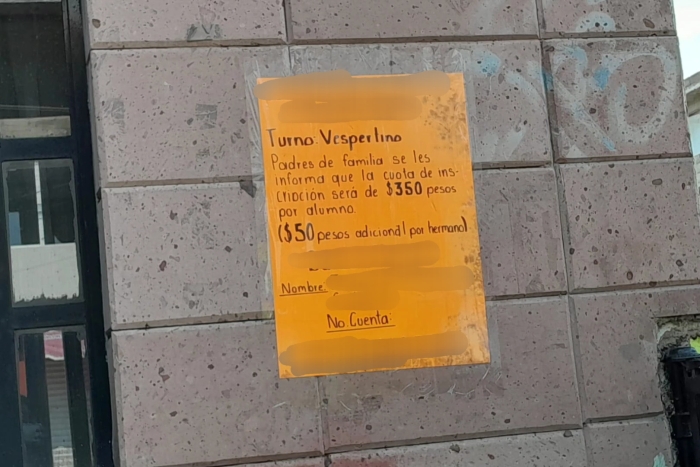 Turno: Vespertino
Padres de familia se les
informa que la cuota de ins-
cripción será de $350 pesos
por alumno.
($50 pesos adicional por hermano)
Nombre:
No. Cuenta: